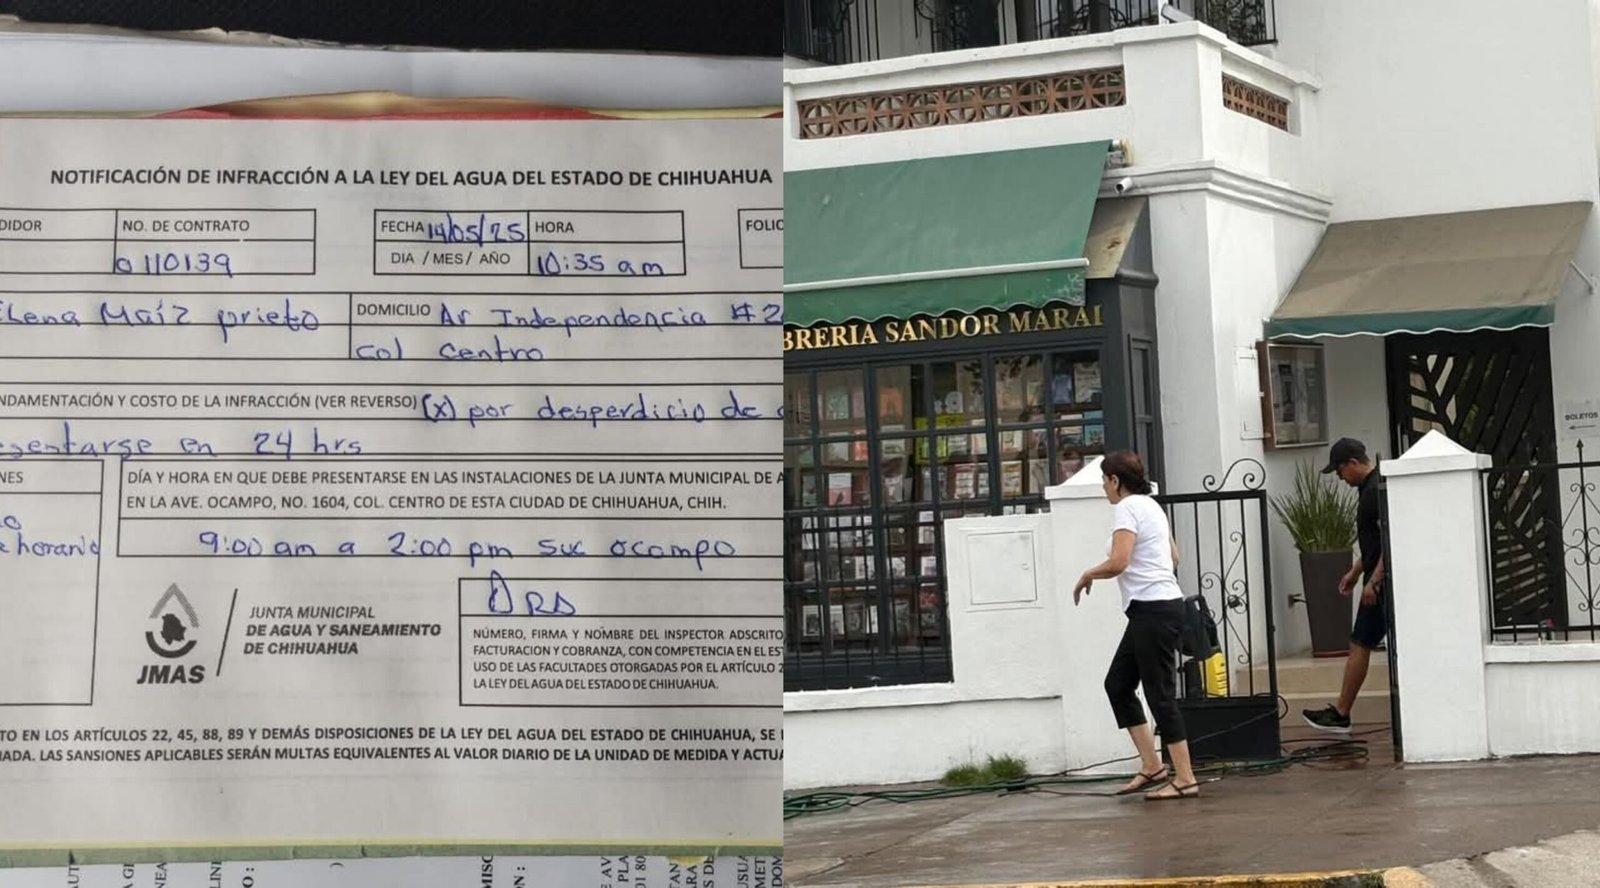 NOTIFICACIÓN DE INFRACCIÓN A LA LEY DEL AGUA DEL ESTADO DE CHIHUAHUA
DIDOR
NO. DE CONTRATO
0110139
FECHA 14/05/25
DIA / MES/ AÑO
HORA
10:35 am
FOLIO
Elena Maíz prieto
DOMICILIO Av Independencia #2
col centro
NDAMENTACIÓN Y COSTO DE LA INFRACCIÓN (VER REVERSO) (x) por desperdicio de
esentarse en 24 hrs
NES
horario
DÍA Y HORA EN QUE DEBE PRESENTARSE EN LAS INSTALACIONES DE LA JUNTA MUNICIPAL DE A
EN LA AVE. OCAMPO, NO. 1604, COL. CENTRO DE ESTA CIUDAD DE CHIHUAHUA, CHIH.
9:00 am a 2:00 pm suc ocampo
JMAS
JUNTA MUNICIPAL
DE AGUA Y SANEAMIENTO
DE CHIHUAHUA
NÚMERO, FIRMA Y NOMBRE DEL INSPECTOR ADSCRITO
FACTURACION Y COBRANZA, CON COMPETENCIA EN EL ES
USO DE LAS FACULTADES OTORGADAS POR EL ARTÍCULO 2
LA LEY DEL AGUA DEL ESTADO DE CHIHUAHUA.
TO EN LOS ARTÍCULOS 22, 45, 88, 89 Y DEMÁS DISPOSICIONES DE LA LEY DEL AGUA DEL ESTADO DE CHIHUAHUA, SE
NADA. LAS SANSIONES APLICABLES SERÁN MULTAS EQUIVALENTES AL VALOR DIARIO DE LA UNIDAD DE MEDIDA Y ACTUA
BRERIA SANDOR MARAI
BOLETOS